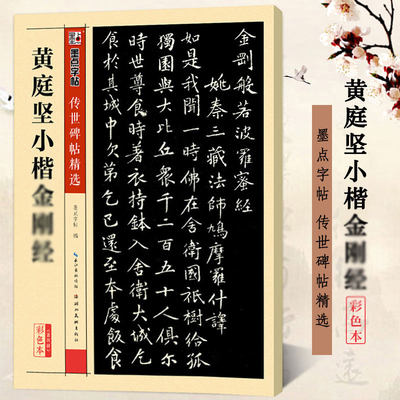 黄庭坚小楷金刚经
彩色本
墨点字帖 传世碑帖精选
金剛般若波羅蜜經
姚秦三藏法師鳩摩羅什譯
如是我聞一時佛在舍衛國祇樹給孤
獨園與大比丘衆千二百五十人俱尒
時世尊食時著衣持鉢入舍衛大城乞
食於其城中次第乞已還至本處飯食
墨点字帖
传世碑帖精选
墨点字帖 编
长江出版传媒
湖北美术出版社
彩色本
黄庭坚小楷金刚经